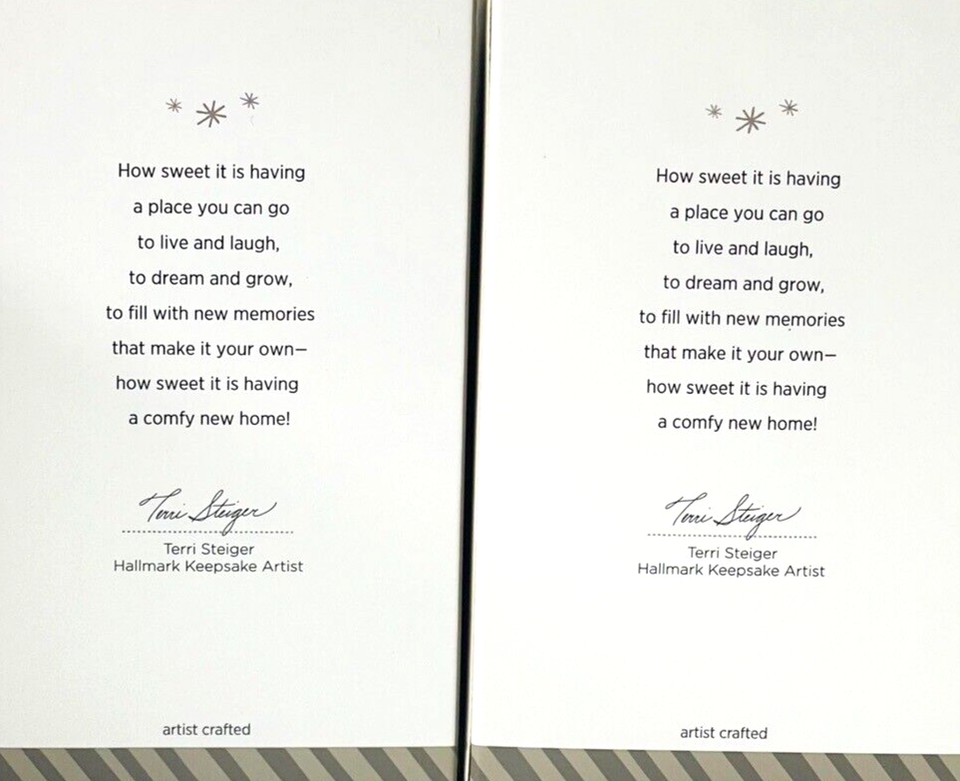 How sweet it is having
a place you can go
to live and laugh,
to dream and grow,
to fill with new memories
that make it your own—
how sweet it is having
a comfy new home!
Terri Steiger
Terri Steiger
Hallmark Keepsake Artist
artist crafted
How sweet it is having
a place you can go
to live and laugh,
to dream and grow,
to fill with new memories
that make it your own—
how sweet it is having
a comfy new home!
Terri Steiger
Terri Steiger
Hallmark Keepsake Artist
artist crafted